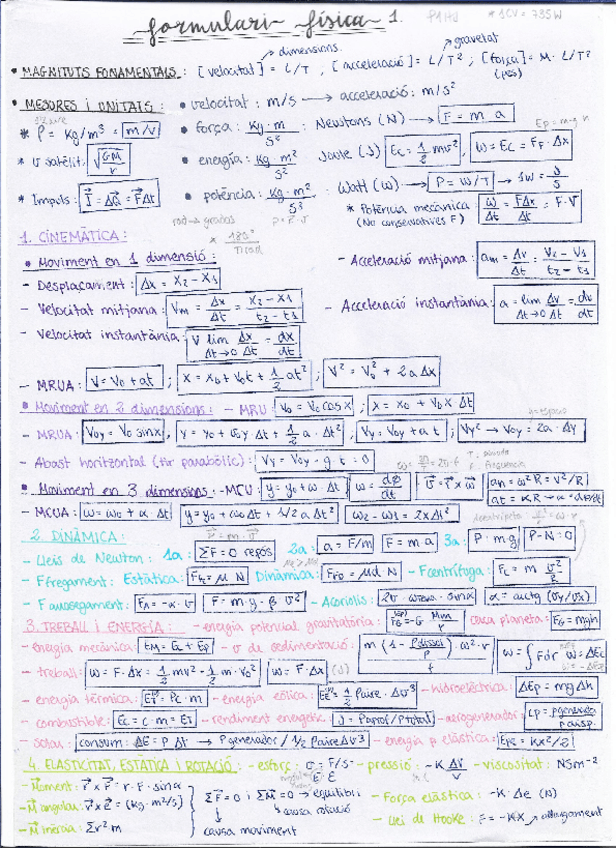 formulari física 1.
* 1CV = 735W
→ dimensions → gravetat
• MAGNITUTS FONAMENTALS: [velocitat] = L/T, [acceleració] = L/T², [força] = M·L/T²
(pes)
• MESURES i UNITATS: • velocitat: m/s → acceleració: m/s²
* ρ = Kg/m³ = m/V • força: Kg·m/s² : Newtons (N) → F = m a
Ep = m·g·h
* v satèlit: √(GM/r) • energía: Kg·m²/s² Joule (J) Ec = 1/2 mv², W = Ec = FF·Δx
* Impuls: J = ΔQ = FΔt • potència: Kg·m²/s³ Watt (W) → P = W/T → 1W = J/s
rad → graus P = F·v * Potència mecànica W/Δt = FΔx/Δt = F·V
(No conservatives F)
* 180º/π rad
1. CINEMÀTICA:
• Moviment en 1 dimensió: - Acceleració mitjana: am = Δv/Δt = V2-V1/t2-t1
- Desplaçament: Δx = x2-x1
- Velocitat mitjana: Vm = Δx/Δt = x2-x1/t2-t1 - Acceleració instantània: a = lim Δt→0 Δv/Δt = dv/dt
- Velocitat instantània: V lim Δt→0 Δx/Δt = dx/dt
- MRUA: V = V0 + at ; x = x0 + V0t + 1/2 at² ; V² = V0² + 2aΔx
• Moviment en 2 dimensions: - MRU: V0 = V0 cos x ; x = x0 + V0x Δt
- MRUA: V0y = V0 sinx, y = y0 + v0y Δt + 1/2 a·Δt² ; Vy = V0y + a t ; Vy² → V0y = 2a·Δy
- Abast horitzontal (tir parabòlic): Vy = V0y - g·t = 0
• Moviment en 3 dimensions: - MCU: y = y0 + ω·Δt ω = dφ/dt v = r × ω an = ω²R = V²/R
at = αR
- MCUA: ω = ω0 + α·Δt y = y0 + ω0Δt + 1/2 a Δt²
2. DINÀMICA:
- Lleis de Newton: 1a: ΣF = 0 repòs 2a: a = F/m F = m a 3a: P = m·g P-N = 0
- F fregament: Estàtica: μ N Dinàmica: μd N - F centrífuga: Fc = m v²/R
- F amosegament: FA = -α·v F = m·g·β v² - Acoriolis: 2v·sinα α = arctg (vy/vx)
3. TREBALL i ENERGIA: - energia potencial gravitatòria: = -G Mm/r caça planeta: = mgh
- energia mecànica: EM = Ec + Ep - v de sedimentació: m (1 - ρdissol/ρ)·ω²·r W = ∫Fdr W = ΔEc
- treball: W = F·Δx = 1/2 mv² - 1/2 m·v0² W = F·Δx (J)
- energia tèrmica: = Pc·m - energia eòlica: = 1/2 ρaire·Δv³ - hidroelèctrica: ΔEp = mgΔh
- combustible: Ec = c·m = ET - rendiment energètic: Paprof/Ptotal - aerogenerador: cp = pgenerada/pdisp.
- solar: consum: ΔE = P Δt → Pgenerador / 1/2 ρaire Δv³ - energia p elàstica: = Kx²/2
4. ELASTICITAT, ESTÀTICA i ROTACIÓ: - esforç: σ = F/S - pressió: -K Δv/V - viscositat: NSm⁻²
- Moment: r × F = r·F·sinα
- M angular: (Kg·m²/s) ΣF = 0 i ΣM = 0 → equilibri - Força elàstica: -K·Δe (N)
↳ causa rotació
- M inèrcia: Σr²·m ↳ causa moviment - Llei de Hooke: F = -Kx → allargament